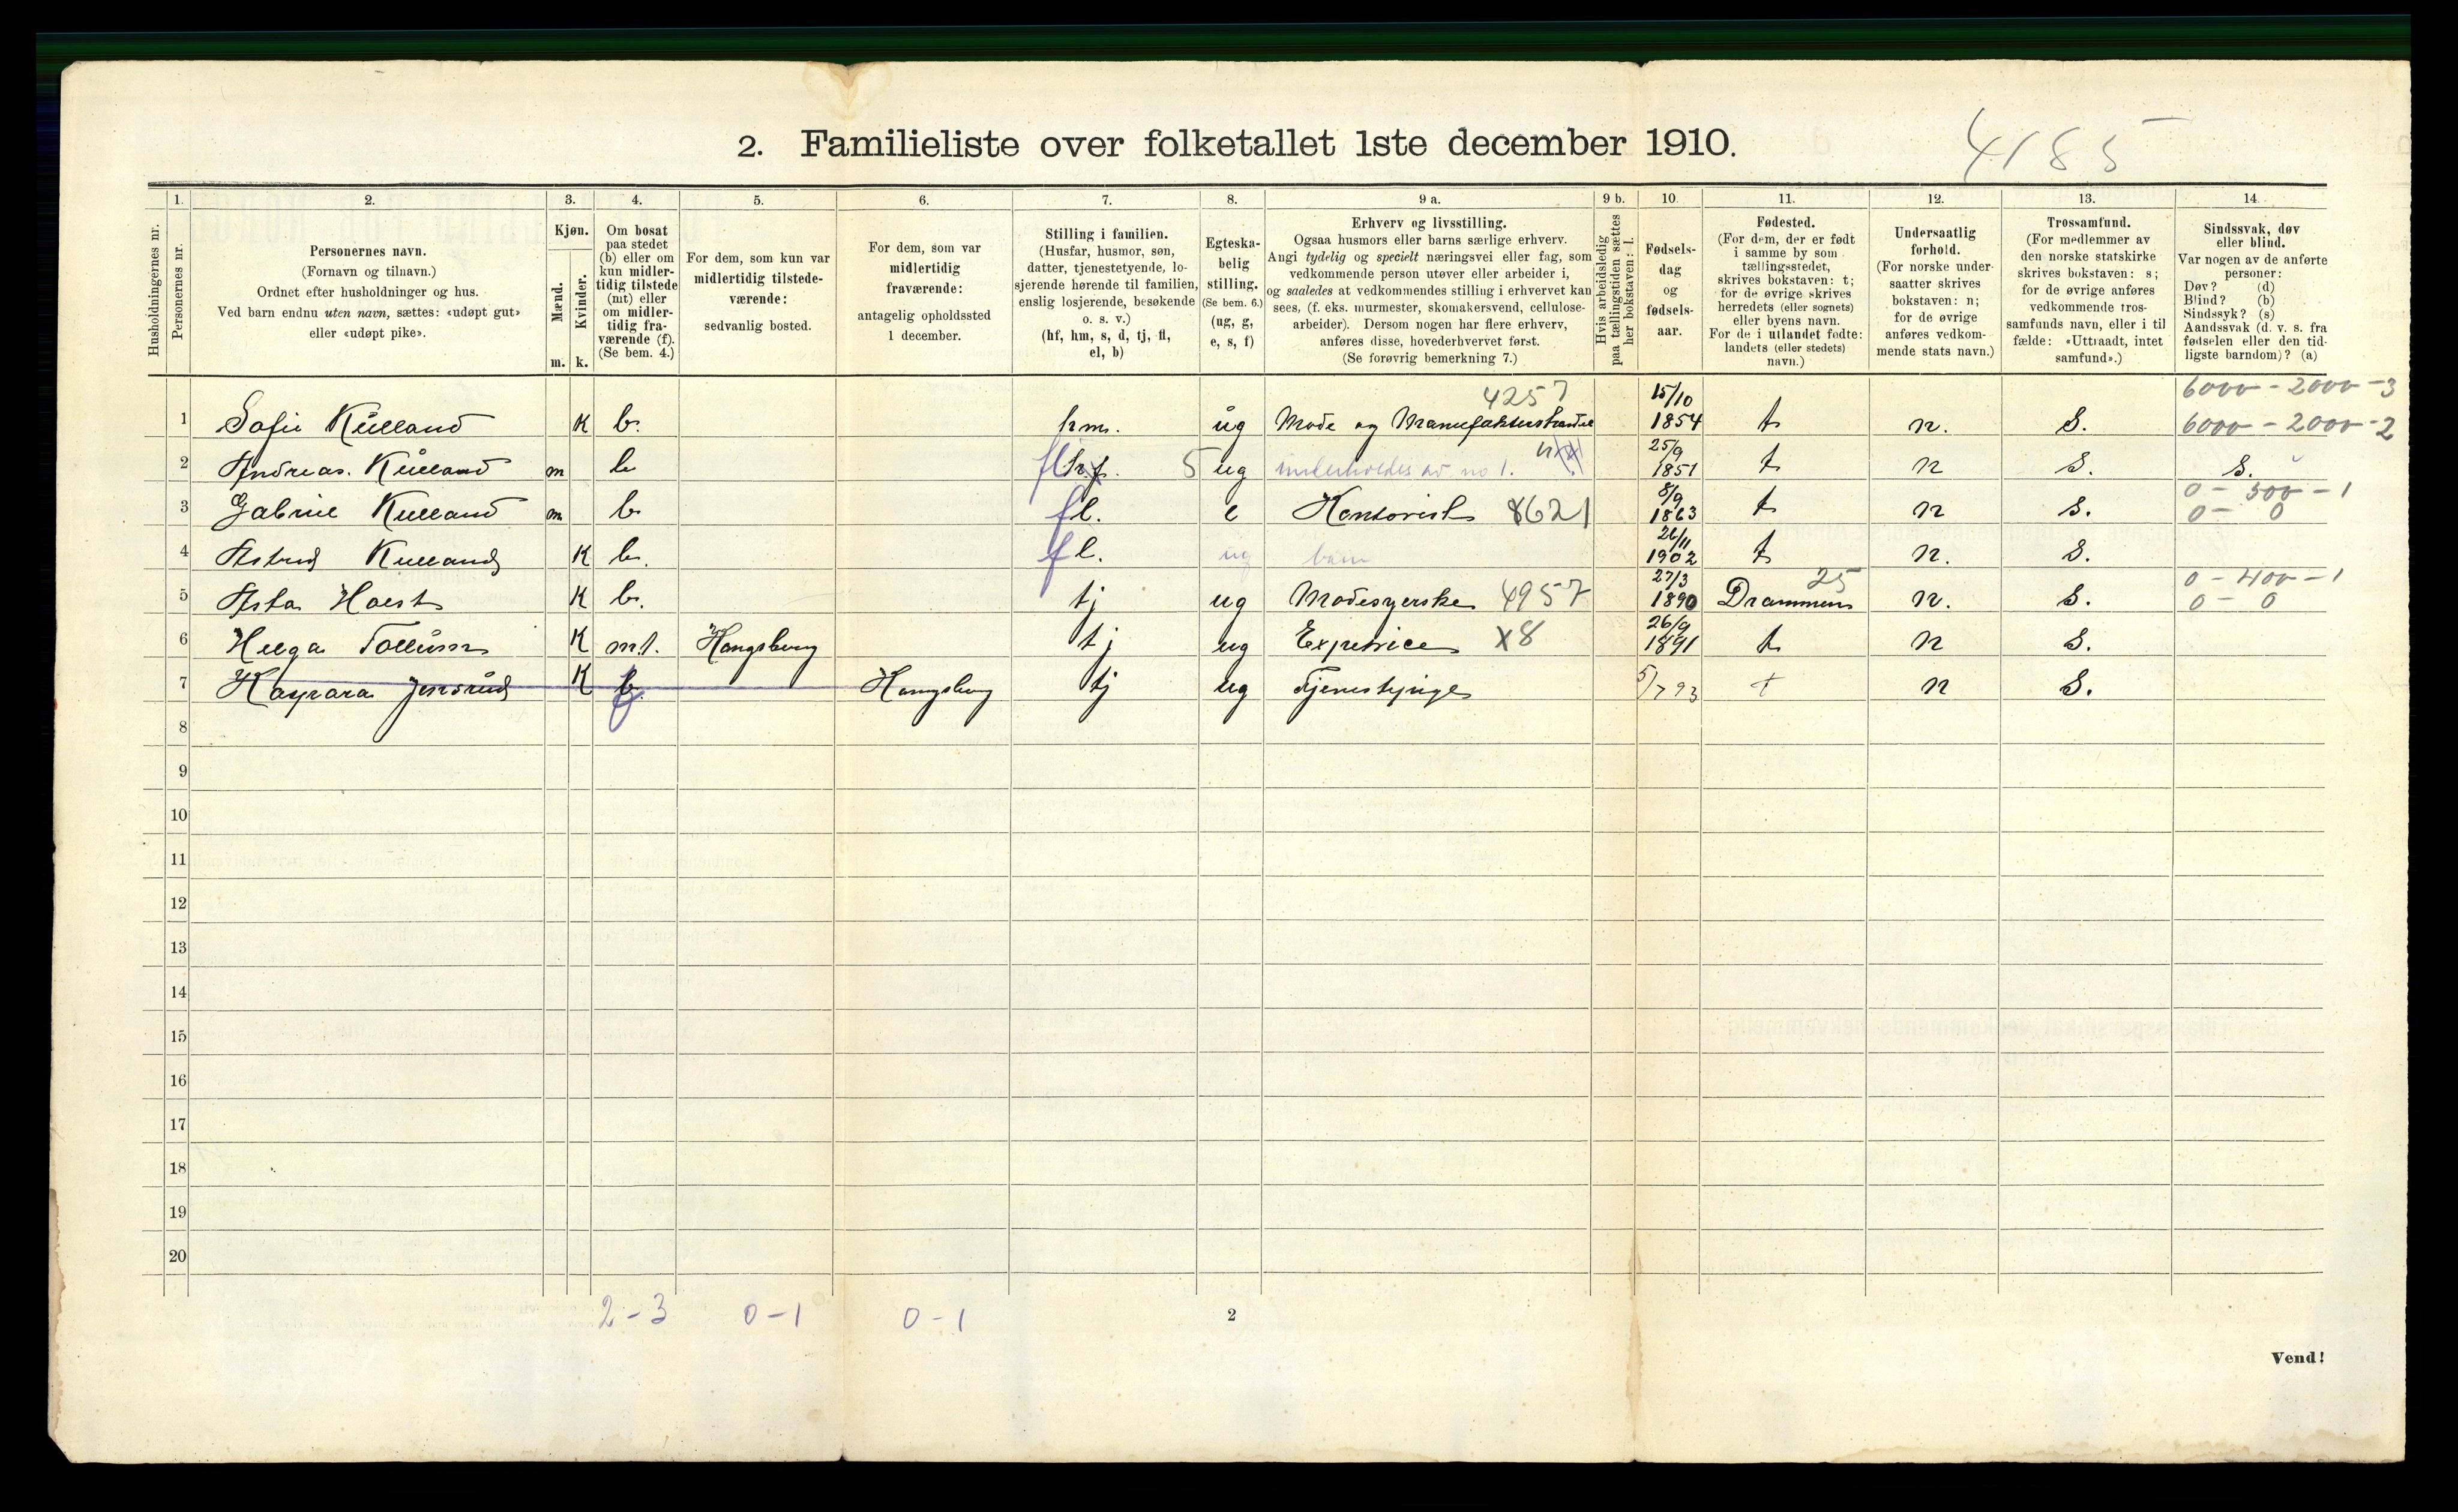 2. Familieliste over folketallet 1ste december 1910.
4185
Husholdningernes nr.
1. Personernes nr.
2. Personernes navn.
(Fornavn og tilnavn.)
Ordnet efter husholdninger og hus.
Ved barn endnu uten navn, sættes: «udøpt gut»
eller «udøpt pike».
3. Kjøn.
Mænd. m.
Kvinder. k.
4. Om bosat
paa stedet
(b) eller om
kun midler-
tidig tilstede
(mt) eller
om midler-
tidig fra-
værende (f).
(Se bem. 4.)
5. For dem, som kun var
midlertidig tilstede-
værende:
sedvanlig bosted.
6. For dem, som var
midlertidig
fraværende:
antagelig opholdssted
1 december.
7. Stilling i familien.
(Husfar, husmor, søn,
datter, tjenestetyende, lo-
sjerende hørende til familien,
enslig losjerende, besøkende
o. s. v.)
(hf, hm, s, d, tj, fl,
el, b)
8. Egteska-
belig
stilling.
(Se bem. 6.)
(ug, g,
e, s, f)
9 a. Erhverv og livsstilling.
Ogsaa husmors eller barns særlige erhverv.
Angi tydelig og specielt næringsvei eller fag, som
vedkommende person utøver eller arbeider i,
og saaledes at vedkommendes stilling i erhvervet kan
sees, (f. eks. murmester, skomakersvend, cellulose-
arbeider). Dersom nogen har flere erhverv,
anføres disse, hovederhvervet først.
(Se forøvrig bemerkning 7.)
9 b. Hvis arbeidsledig
paa tællingstiden sættes
her bokstaven: l.
10. Fødsels-
dag
og
fødsels-
aar.
11. Fødested.
(For dem, der er født
i samme by som
tællingsstedet,
skrives bokstaven: t;
for de øvrige skrives
herredets (eller sognets)
eller byens navn.
For de i utlandet fødte:
landets (eller stedets)
navn.)
12. Undersaatlig
forhold.
(For norske under-
saatter skrives
bokstaven: n;
for de øvrige
anføres vedkom-
mende stats navn.)
13. Trossamfund.
(For medlemmer av
den norske statskirke
skrives bokstaven: s;
for de øvrige anføres
vedkommende tros-
samfunds navn, eller i til
fælde: «Uttraadt, intet
samfund».)
14. Sindssvak, døv
eller blind.
Var nogen av de anførte
personer:
Døv? (d)
Blind? (b)
Sindssyk? (s)
Aandssvak (d. v. s. fra
fødselen eller den tid-
ligste barndom)? (a)
4257 15/10 6000 - 2000 - 3
1 Sofie Kielland K b. hm. ug Mode og Manufakturhandel 1854 t n. S. 6000 - 2000 - 2
2 Andreas Kielland m b fl hf. 5 ug underholdes av no 1. 25/9 1851 t n S. S.
3 Gabriel Kielland m b fl. e Kontorist 8621 8/9 1863 t n S. 0 - 500 - 1
0 - 0
4 Astrid Kielland K b. fl. ug barn 26/11 1902 t n. S.
5 Asta Hoest K b. tj ug Modesyerske 4957 27/3 1890 Drammen 25 n. S. 0 - 400 - 1
0 - 0
6 Helga Tollum K mt. Kongsberg tj ug Expetrice x8 26/9 1891 t n S.
7 K f Kongsberg tj ug Tjenestepige 5/7 93 t n S.
8
9
10
11
12
13
14
15
16
17
18
19
20
2 - 3 0 - 1 0 - 1
2
Vend!